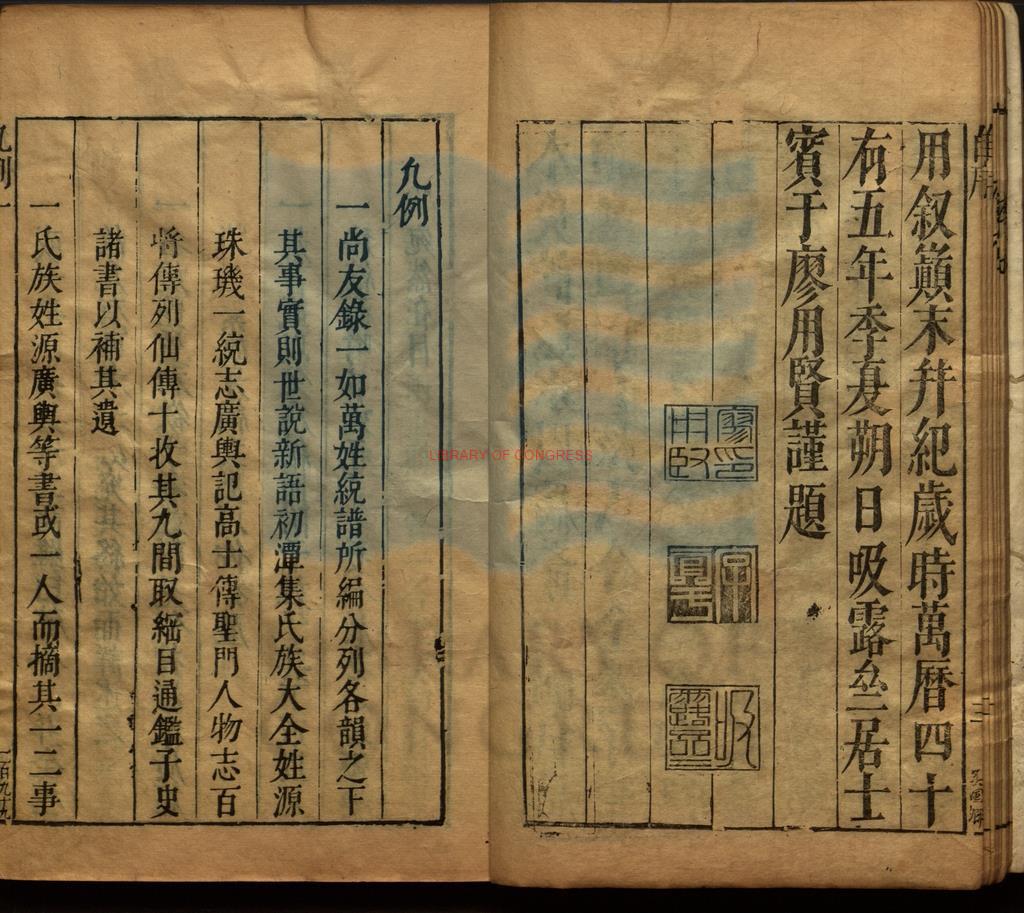 用叙籟末幷紀歲時萬曆四十
有五年季夏朔日吸露亝居士
賓于廖用賢謹題
凡例
一尚友錄一如萬姓統譜所編分列各韻之下
其事實則世說新語初潭集氏族大全姓源
珠璣一統志廣輿記高士傳聖門人物志百
將傳列仙傳十收其九間取綱目通鑑子史
諸書以補其遺
一氏族姓源廣輿等書或一人而摘其一二事
凡例 一
LIBRARY OF CONGRESS